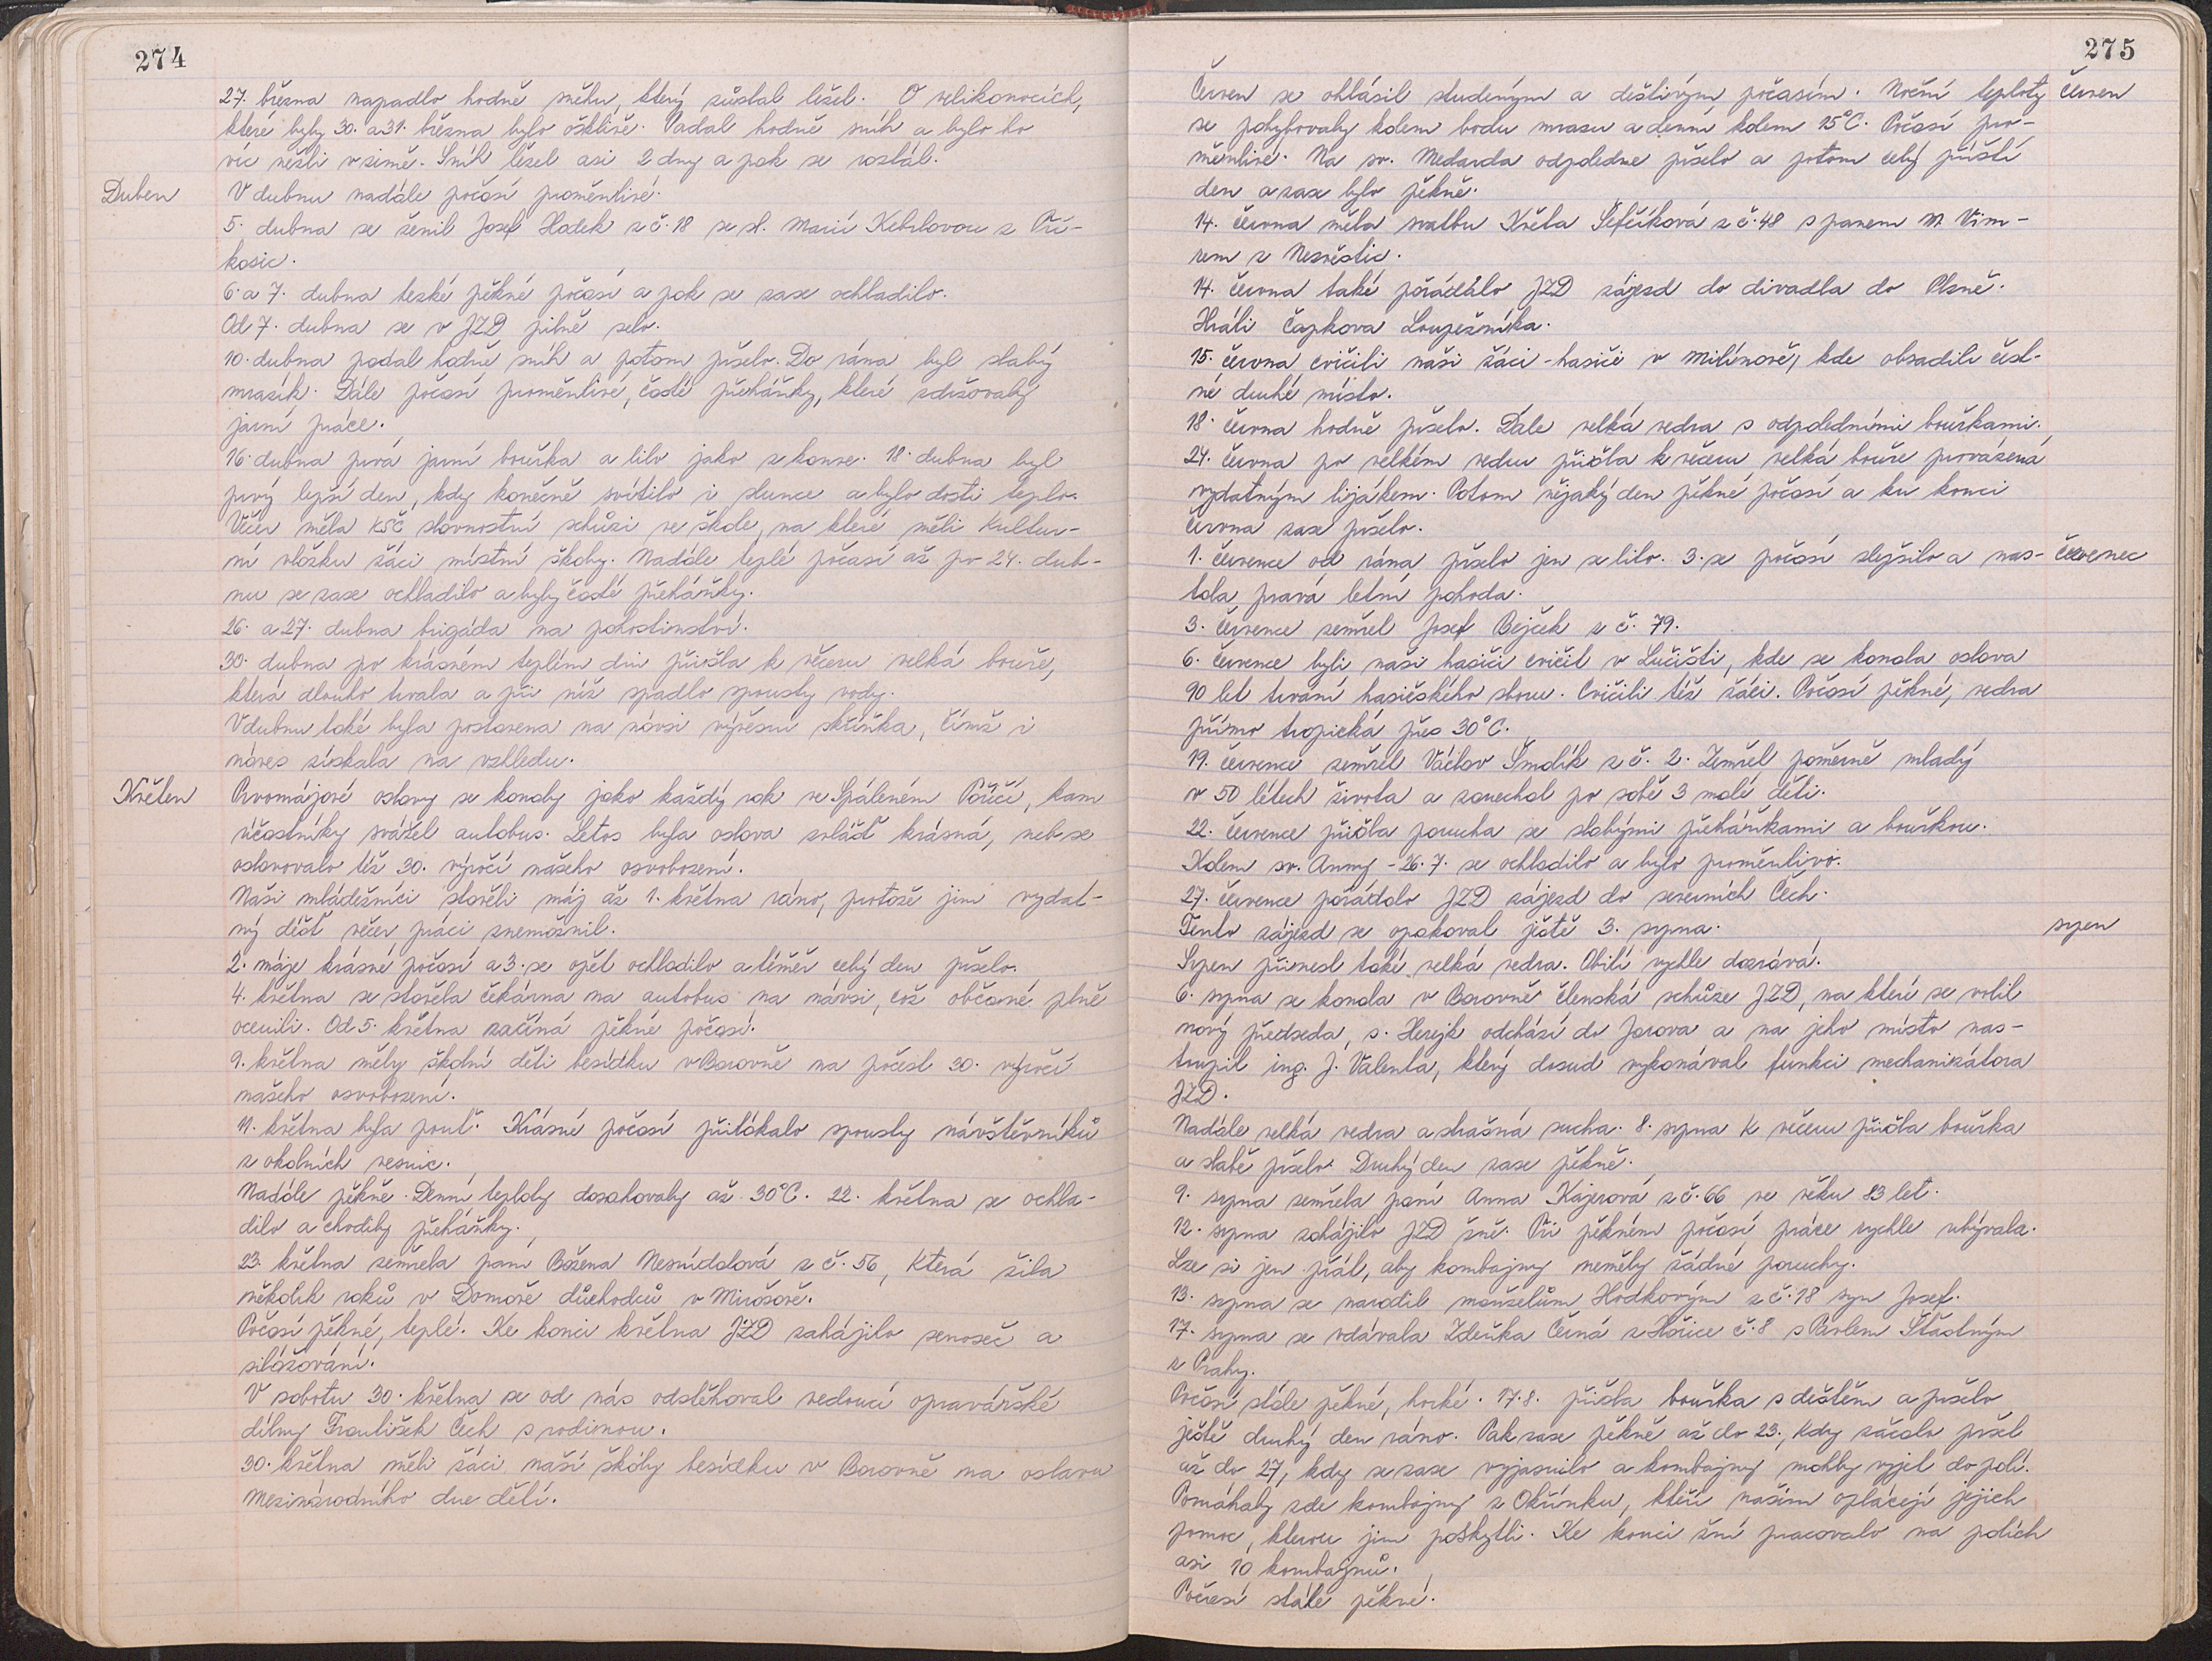 274
27. března napadlo hodně sněhu, který zůstal ležet. O velikonocích,
které byly 30. a 31. března bylo ošklivě. Padal hodně sníh a bylo ho
víc nežli v zimě. Sníh ležel asi 2 dny a pak se roztál.
Duben
V dubnu nadále počasí proměnlivé.
5. dubna se ženil Josef Hodek z č. 18 se sl. Marií Kebrlovou z Pří-
kosic.
6. a 7. dubna hezké pěkné počasí a pak se zase ochladilo.
Od 7. dubna se v JZD pilně selo.
10. dubna padal hodně sníh a potom pršelo. Do rána byl slabý
mrazík. Dále počasí proměnlivé, časté přeháňky, které zdržovaly
jarní práce.
16. dubna prvá jarní bouřka a lilo jako z konve. 18. dubna byl
prvý lepší den, kdy konečně svítilo i slunce a bylo dosti teplo.
Večer měla KSČ slavnostní schůzi ve škole, na které měli kultur-
ní vložku žáci místní školy. Nadále teplé počasí až po 24. dub-
nu se zase ochladilo a byly časté přeháňky.
26. a 27. dubna brigáda na pohostinství.
30. dubna po krásném teplém dni přišla k večeru velká bouře,
která dlouho trvala a při níž spadlo spousty vody.
V dubnu také byla postavena na návsi vývěsní skříňka, čímž i
náves získala na vzhledu.
Květen
Prvomájové oslavy se konaly jako každý rok ve Spáleném Poříčí, kam
účastníky svážel autobus. Letos byla oslava zvlášť krásná, neb se
oslavovalo též 30. výročí našeho osvobození.
Naši mládežníci stavěli máj až 1. května ráno, protože jim vydat-
ný déšť večer práci znemožnil.
2. máje krásné počasí a 3. se opět ochladilo a téměř celý den pršelo.
4. května se stavěla čekárna na autobus na návsi, což občané plně
ocenili. Od 5. května začíná pěkné počasí.
9. května měly školní děti besídku v Borovně na počest 30. výročí
našeho osvobození.
11. května byla pouť. Krásné počasí přilákalo spousty návštěvníků
z okolních vesnic.
Nadále pěkně. Denní teploty dosahovaly až 30°C. 22. května se ochla-
dilo a chodily přeháňky.
23. května zemřela paní Božena Nesnídalová z č. 56, která žila
několik roků v Domově důchodců v Mirošově.
Počasí pěkné, teplé. Ke konci května JZD zahájilo senoseč a
silážování.
V sobotu 30. května se od nás odstěhoval vedoucí opravářské
dílny František Čech s rodinou.
30. května měli žáci naší školy besídku v Borovně na oslavu
Mezinárodního dne dětí.
275
Červen se ohlásil studeným a deštivým počasím. Noční teploty
červen
se pohybovaly kolem bodu mrazu a denní kolem 15°C. Počasí pro-
měnlivé. Na sv. Medarda odpoledne pršelo a potom celý příští
den a zase bylo pěkně.
14. června měla svatbu Květa Šefčíková z č. 48 s panem M. Vim-
rem z Nezvěstic.
14. června také pořádálo JZD zájezd do divadla do Plzně.
Hráli Čapkova Loupežníka.
15. června cvičili naši žáci - hasiči v Milínově, kde obsadili čest-
né druhé místo.
18. června hodně pršelo. Dále velká vedra s odpoledními bouřkami.
24. června po velkém vedru přišla k večeru velká bouře provázená
vydatným lijákem. Potom nějaký den pěkné počasí a ku konci
června zase pršelo.
1. července od rána pršelo jen se lilo. 3. se počasí zlepšilo a nas-
červenec
tala pravá letní pohoda.
3. července zemřel Josef Bejček z č. 79.
6. července byli naši hasiči cvičit v Lučišti, kde se konala oslava
90 let trvání hasičského sboru. Cvičili též žáci. Počasí pěkné, vedra
přímo tropická přes 30°C.
19. července zemřel Václav Šmolík z č. 2. Zemřel poměrně mladý
v 50 létech života a zanechal po sobě 3 malé děti.
22. července přišla porucha se slabými přeháňkami a bouřkou.
Kolem sv. Anny - 26. 7. se ochladilo a bylo proměnlivo.
27. července pořádalo JZD zájezd do severních Čech.
Tento zájezd se opakoval ještě 3. srpna.
srpen
Srpen přinesl také velká vedra. Obilí rychle dozrává.
6. srpna se konala v Borovně členská schůze JZD, na které se volil
nový předseda, s. Herejk odchází do Jarova a na jeho místo nas-
toupil ing. J. Valenta, který dosud vykonával funkci mechanizátora
JZD.
Nadále velká vedra a strašná sucha. 8. srpna k večeru přišla bouřka
a slabě pršelo. Druhý den zase pěkně.
9. srpna zemřela paní Anna Kajerová z č. 66 ve věku 83 let.
12. srpna zahájilo JZD žně. Při pěkném počasí práce rychle ubývala.
Lze si jen přát, aby kombajny neměly žádné poruchy.
13. srpna se narodil manželům Hodkovým z č. 18 syn Josef.
17. srpna se vdávala Zdeňka Černá z Hořice č. 8 s Pavlem Šťastným
z Prahy.
Počasí stále pěkné, horké. 17. 8. přišla bouřka s deštěm a pršelo
ještě druhý den ráno. Pak zase pěkně až do 23., kdy začalo pršet
až do 27, kdy se zase vyjasnilo a kombajny mohly vyjet do polí.
Pomáhaly zde kombajny z Okřínku, kteří našim oplácejí jejich
pomoc, kterou jim poskytli. Ke konci žní pracovalo na polích
asi 10 kombajnů.
Počasí stále pěkné.